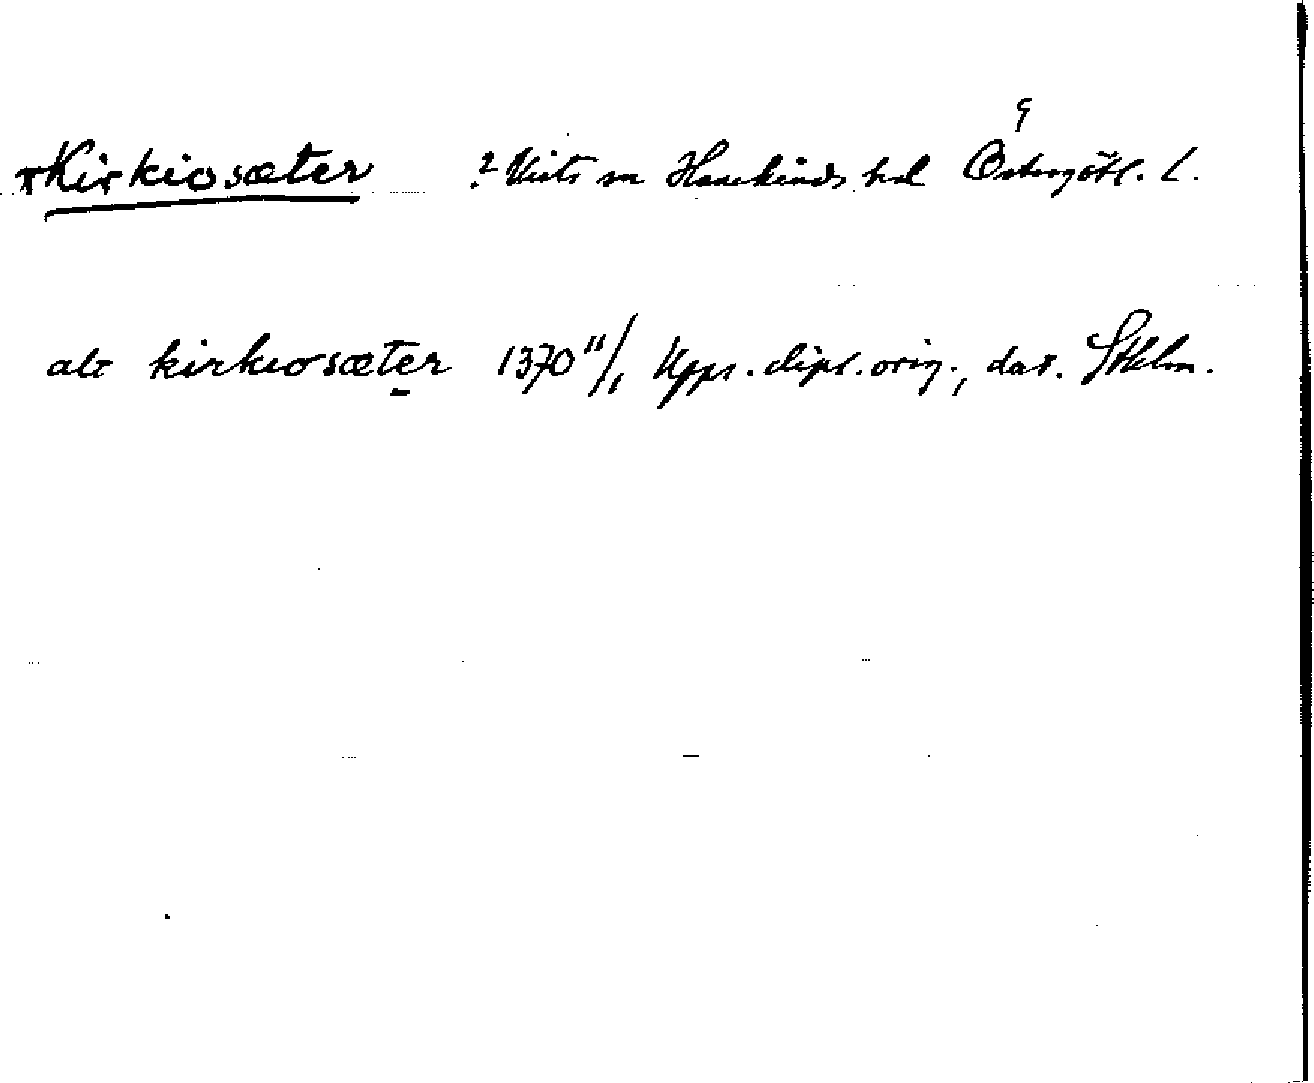 Kirkiosæter ? Vists sn Hanekinds hd Östergötl. l.
alt kirkiosæter 1370 11/1 Upps. dipl. orig., dat. Sthlm.